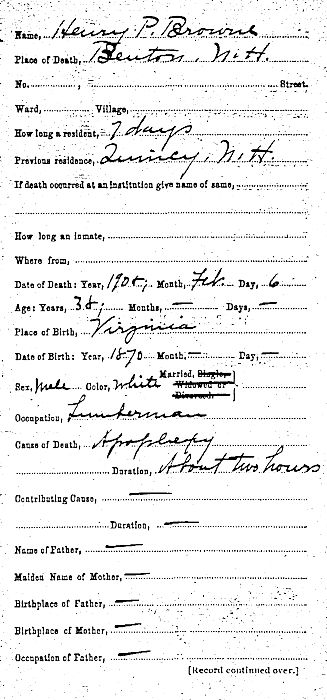 Name, Henry P. Browne
Place of Death, Benton, N.H.
No. , Street.
Ward, Village,
How long a resident, 7 days
Previous residence, Quincy, N.H.
If death occurred at an institution give name of same,
How long an inmate,
Where from,
Date of Death: Year, 1908, Month, Feb Day, 6
Age: Years, 38, Months, — Days, —
Place of Birth, Virginia
Date of Birth: Year, 1870 Month, — Day, —
Sex, Male Color, White Married, Single, Widowed or Divorced
Occupation, Lumberman
Cause of Death, Apoplexy
Duration, About two hours
Contributing Cause, —
Duration, —
Name of Father, —
Maiden Name of Mother, —
Birthplace of Father, —
Birthplace of Mother, —
Occupation of Father, —
[Record continued over.]